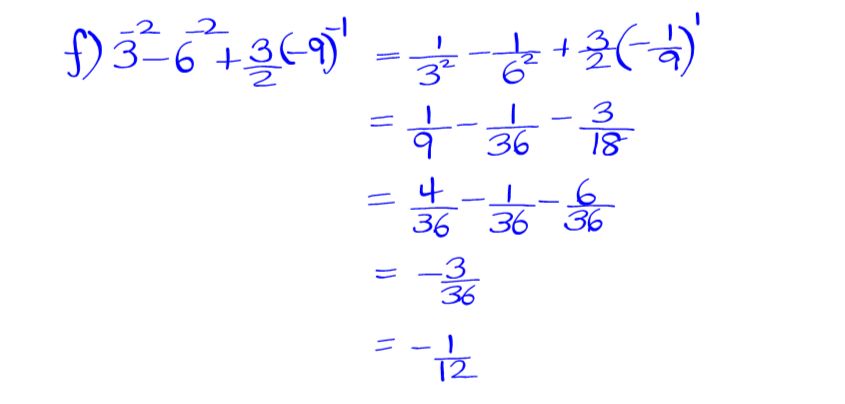 f) 3⁻² - 6⁻² + 3/2 (-9)⁻¹ = 1/3² - 1/6² + 3/2 (-1/9)¹
= 1/9 - 1/36 - 3/18
= 4/36 - 1/36 - 6/36
= -3/36
= -1/12